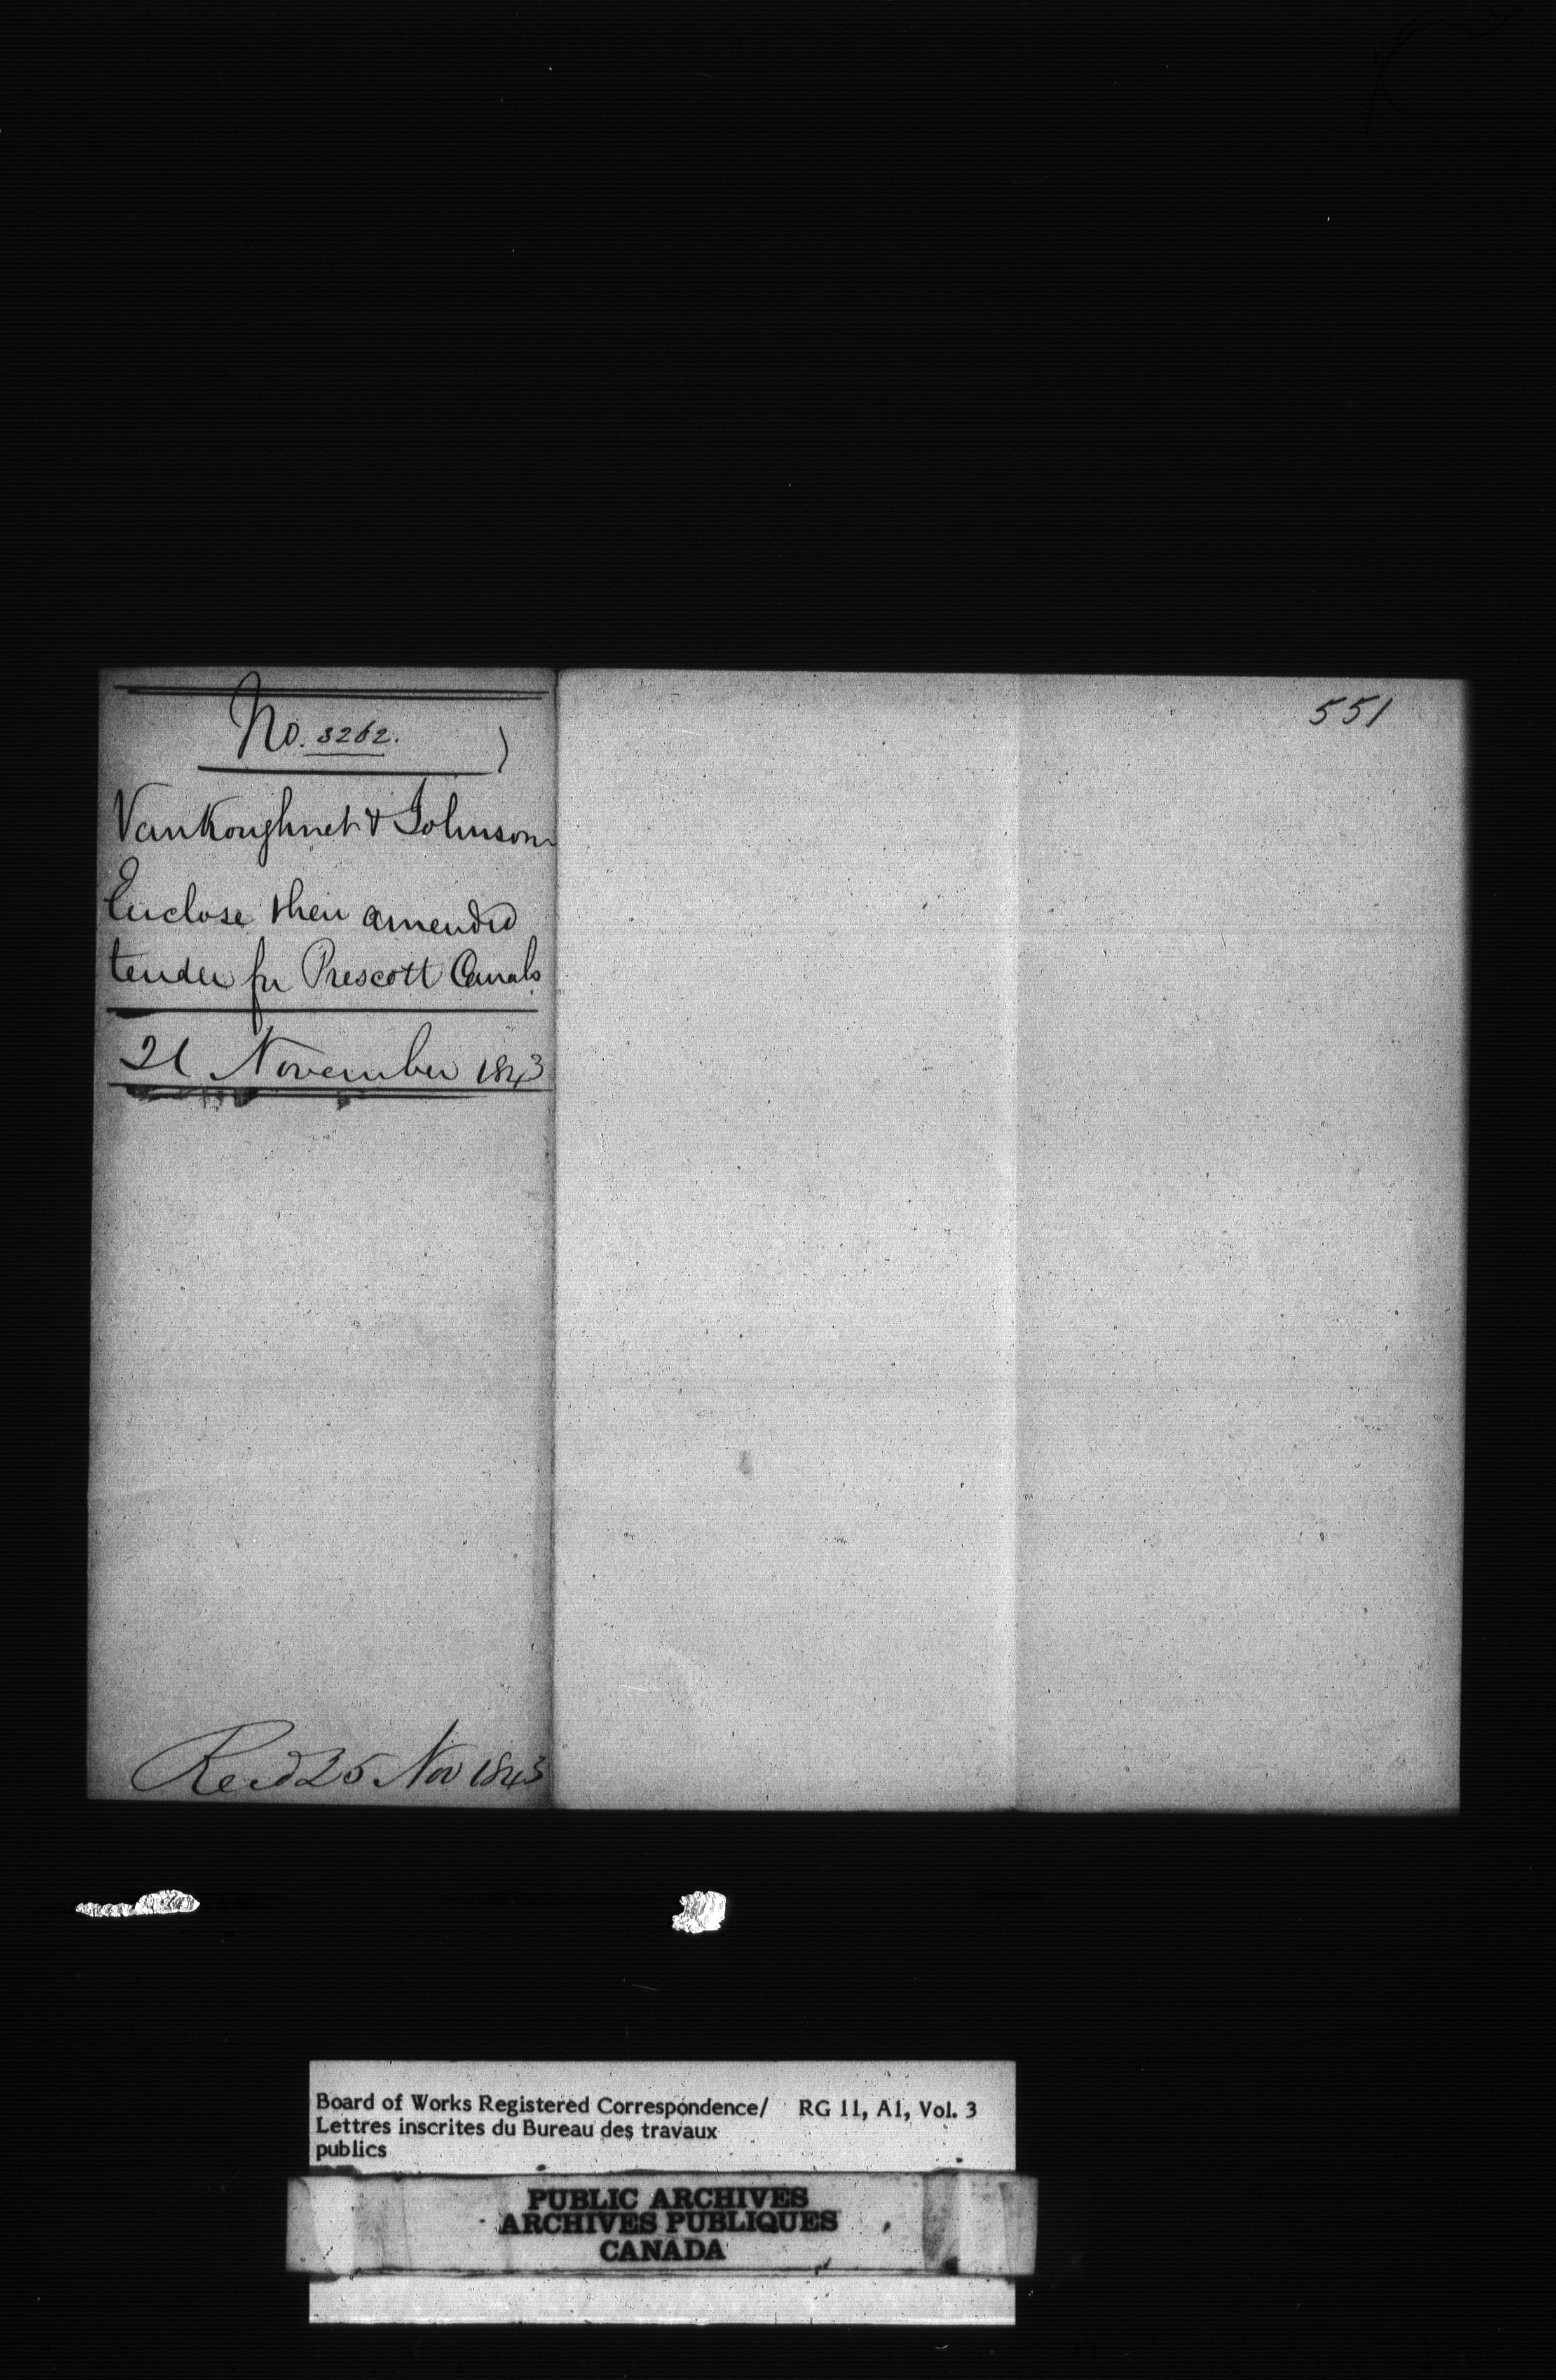 No. 3262.
VanKoughnet & Johnson
Enclose their amended
tender for Prescott Canals
21 November 1843
Recd 25 Nov 1843
551
Board of Works Registered Correspondence/ RG 11, A1, Vol. 3
Lettres inscrites du Bureau des travaux
publics
PUBLIC ARCHIVES
ARCHIVES PUBLIQUES
CANADA